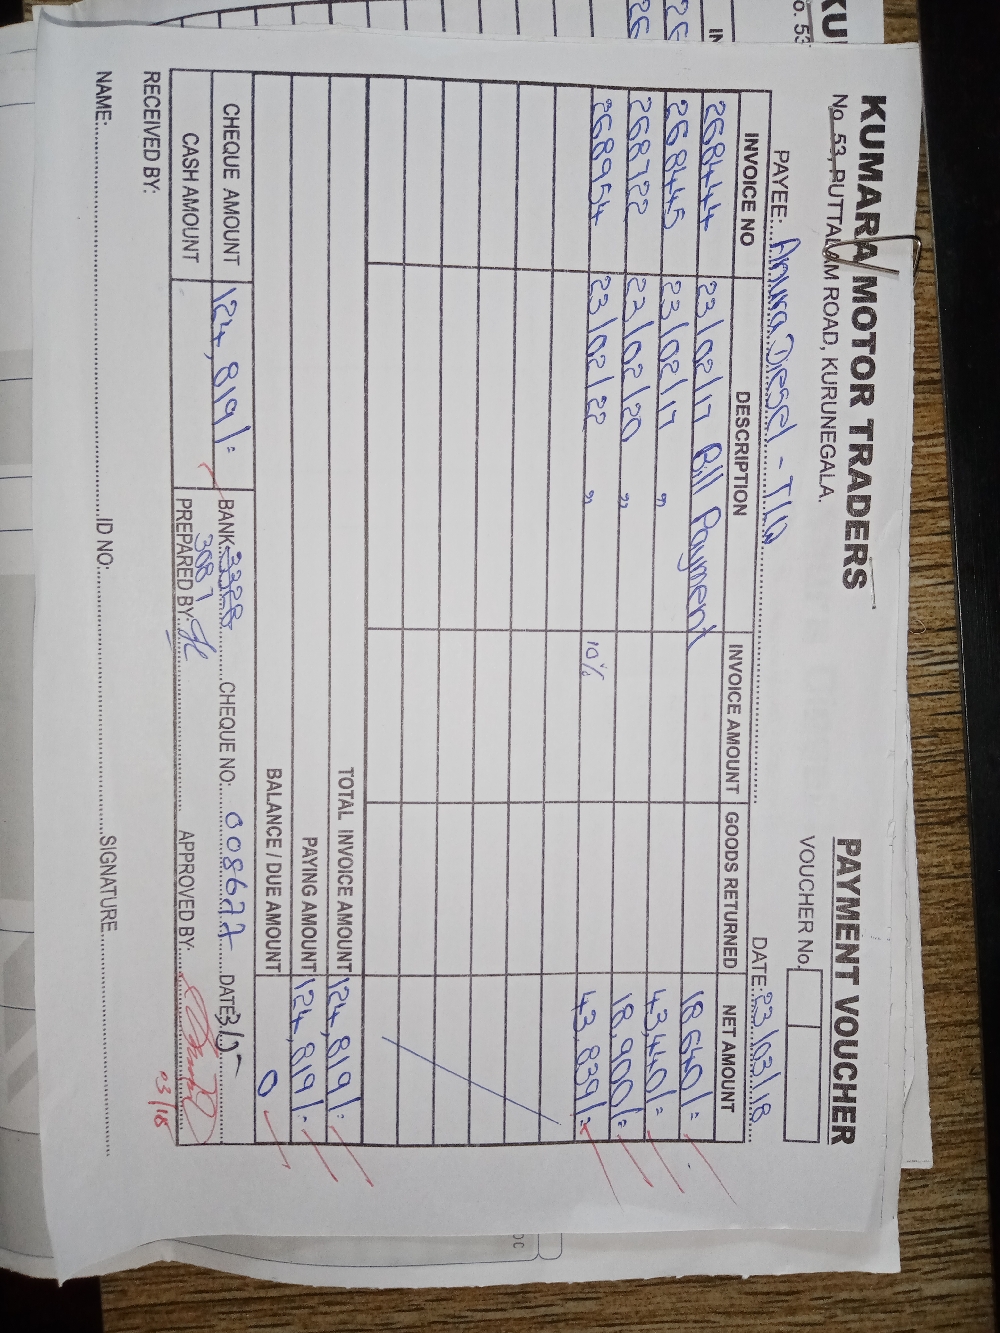 KUMARA MOTOR TRADERS
No. 53, PUTTALAM ROAD, KURUNEGALA.
PAYMENT VOUCHER
VOUCHER No.
PAYEE: Anura Diesel - T/W DATE: 23/03/18
INVOICE NO DESCRIPTION INVOICE AMOUNT GOODS RETURNED NET AMOUNT
268444 23/02/17 Bill Payment 18640/=
268445 23/02/17 " 43,440/=
268722 23/02/20 " 18,900/=
268954 23/02/22 " 10% 43,839/=
TOTAL INVOICE AMOUNT 124,819/=
PAYING AMOUNT 124,819/=
BALANCE / DUE AMOUNT 0
CHEQUE AMOUNT 124,819/= BANK: 3328 CHEQUE NO: 008677 DATE 3/5
3087
CASH AMOUNT PREPARED BY: APPROVED BY:
03/18
RECEIVED BY:
NAME: ID NO: SIGNATURE